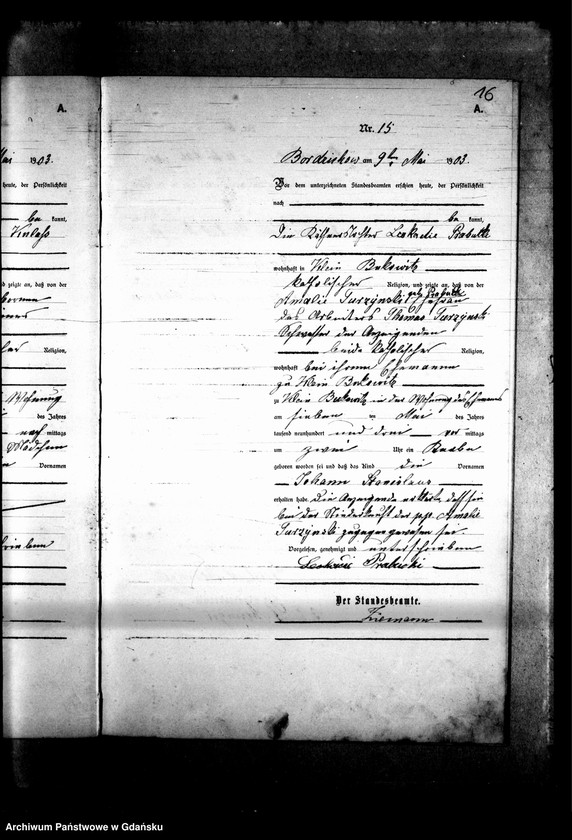 A.
Mai 1903.
heute, der Persönlichkeit
be kannt,
und zeigte an, daß von der
Religion,
Wohnung
des Jahres
nach mittags
Mädchen
Vornamen
16
A.
Nr. 15
Bordzichow am 9ten Mai 1903.
Vor dem unterzeichneten Standesbeamten erschien heute, der Persönlichkeit
nach
be kannt,
Die Käthnertochter Leokadie Prabutki
wohnhaft in Klein Bukowitz
katholischer Religion, und zeigte an, daß von der
Amalie Turzynski geb. Prabutki Ehefrau
des Arbeiters Thomas Turzynski
Schwester der Anzeigenden
beide katholischer Religion,
wohnhaft bei ihrem Ehemanne
zu Klein Bukowitz
zu Klein Bukowitz in der Wohnung des Ehemannes
am sieben ten Mai des Jahres
tausend neunhundert und drei vor mittags
um zwei Uhr ein Knabe
geboren worden sei und daß das Kind die Vornamen
Johann Stanislaus
erhalten habe. Die Anzeigende erklärte, daß sie
bei der Niederkunft der p.p. Amalie
Turzynski zugegen gewesen sei.
Vorgelesen, genehmigt und unterschrieben
Der Standesbeamte.
Ziemann
Archiwum Państwowe w Gdańsku